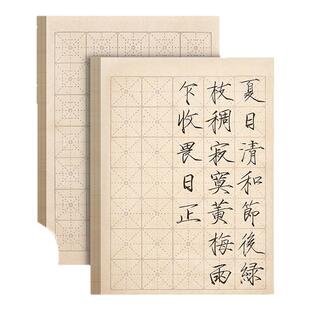 夏日清和節後緑
枝稠寂寞黃梅雨
乍收畏日正